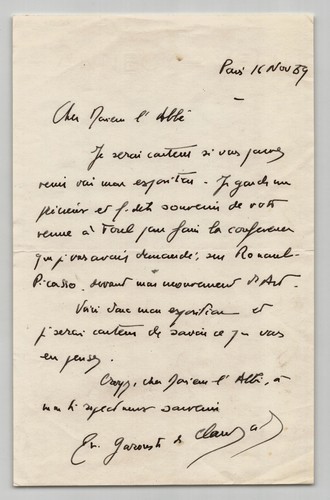 Paris 16 Nov 59
Cher Monsieur l'Abbé
Je serai content si vous pouvez
venir voir mon exposition. Je garde un
et fidèle souvenir de votre
venue à Toul pour faire la conférence
que je vous avais demandé, sur Rouault-
Picasso, devant mon mouvement d'Art.
Voici donc mon exposition et
je serai content de savoir ce que vous
en pensez.
Croyez, cher Monsieur l'Abbé, à
mon souvenir
de